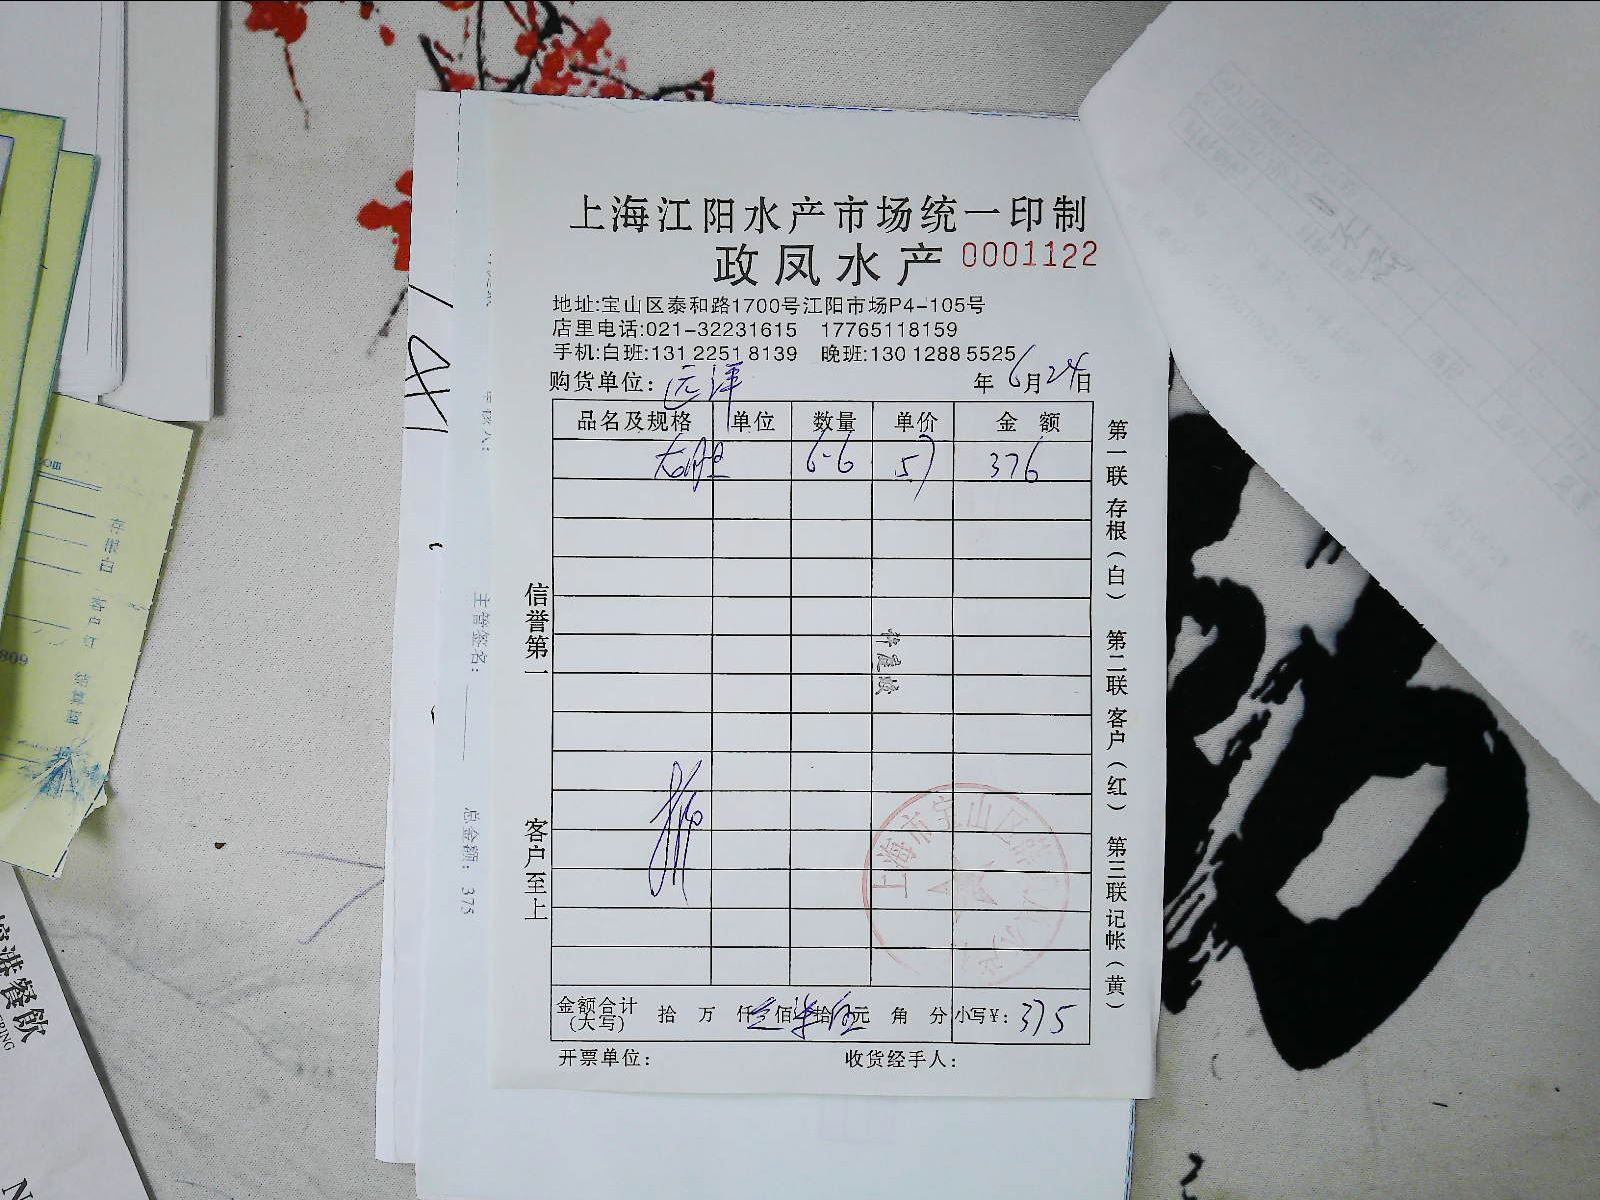 上海江阳水产市场统一印制
政凤水产 0001122
地址:宝山区泰和路1700号江阳市场P4-105号
店里电话:021-32231615 17765118159
手机:白班:131 2251 8139 晚班:130 1288 5525
购货单位: 远洋 年 6月24日
品名及规格 单位 数量 单价 金额
6-6 57 376
金额合计(大写) 拾 万 仟 佰 拾 伍元 角 分 小写¥: 375
开票单位: 收货经手人:
信誉第一
客户至上
第一联 存根(白) 第二联 客户(红) 第三联 记帐(黄)
上海市宝山区
主管签名:
总金额: 375
809
餐飲